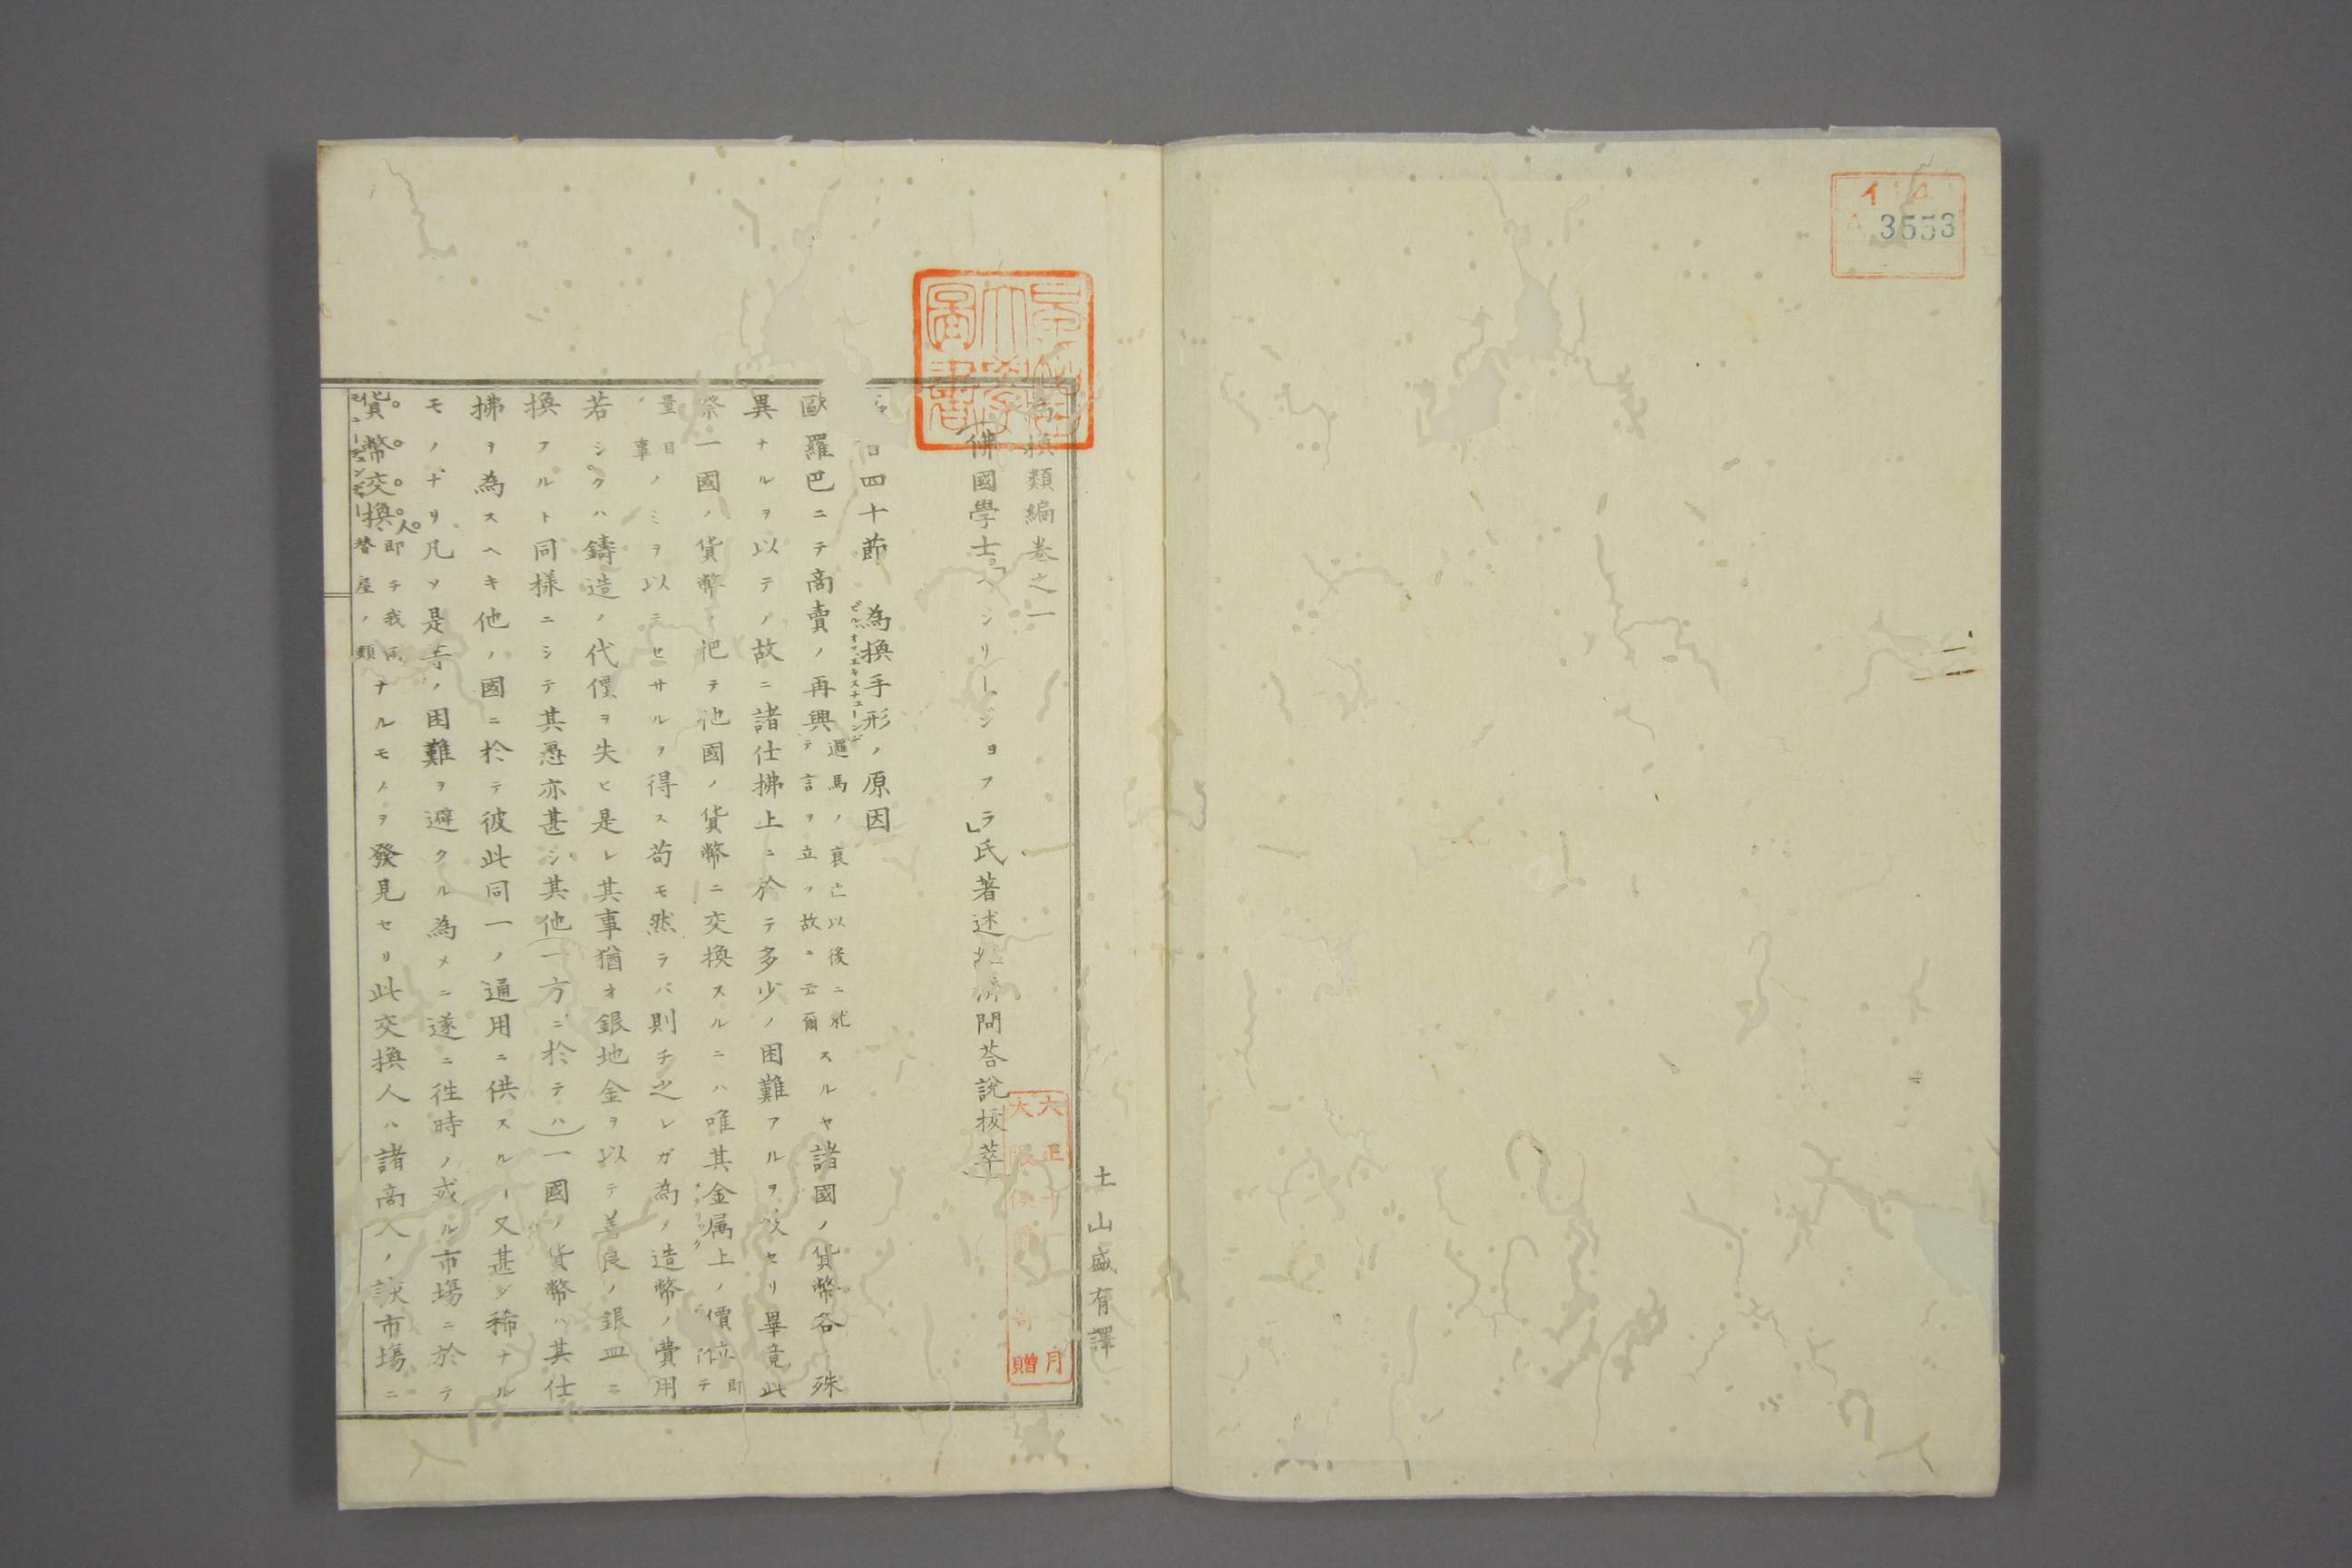 3553
為換類編巻之一
土山盛有譯
佛國學士「ヘンリー、ジヨフラ」氏著述 問荅說抜萃
四十節 為換手形ノ原因
ビルオフエキスチェーンジ
歐羅巴ニテ商賣ノ再興 邏馬ノ衰亡以後ニ就テ言ヲ立ツ故ニ云爾 スルヤ諸國ノ貨幣各殊
異ナルヲ以テノ故ニ諸仕拂上ニ於テ多少ノ困難アルヲ致セリ畢竟此
際一國ノ貨幣ヲ把テ他國ノ貨幣ニ交換スルニハ唯其金属上ノ價位 即チ
量目ノ事 ノミヲ以ニセサルヲ得ス苟モ然ラバ則チ之レガ為メ造幣ノ費用
若シクハ鑄造ノ代價ヲ失ヒ是レ其事猶オ銀地金ヲ以テ善良ノ銀皿ニ
換フルト同様ニシテ其愚亦甚シ其他(一方ニ於テハ)一國ノ貨幣ハ其仕
拂ヲ為スヘキ他ノ國ニ於テ彼此同一ノ通用ニ供スルー又甚ダ稀ナル
モノナリ凡ソ是等ノ困難ヲ避クル為メニ遂ニ徃時ノ或ル市場ニ於テ
貨幣交換人 即チ我両替屋ノ類 ナルモノヲ發見セリ此交換人ハ諸商人ノ該市場ニ
大正
月
大
贈